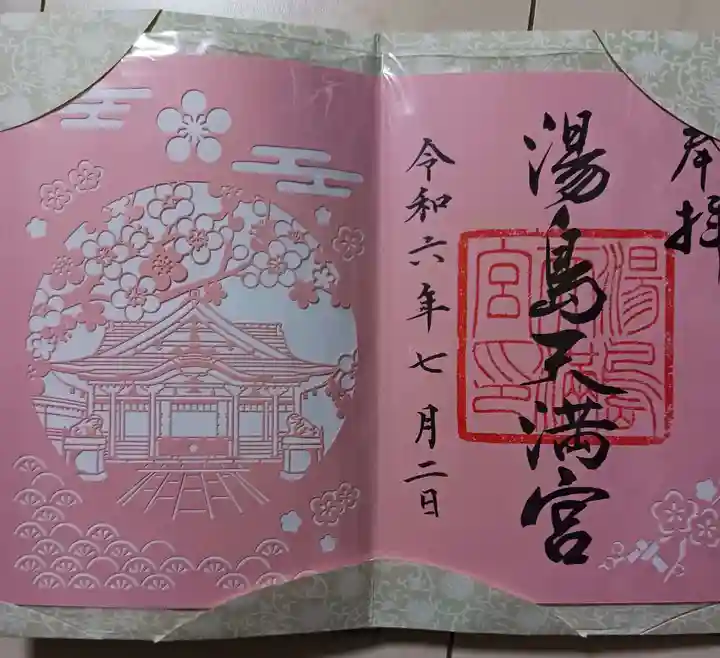 奉拝
湯島天満宮
湯島天満宮印
令和六年七月二日